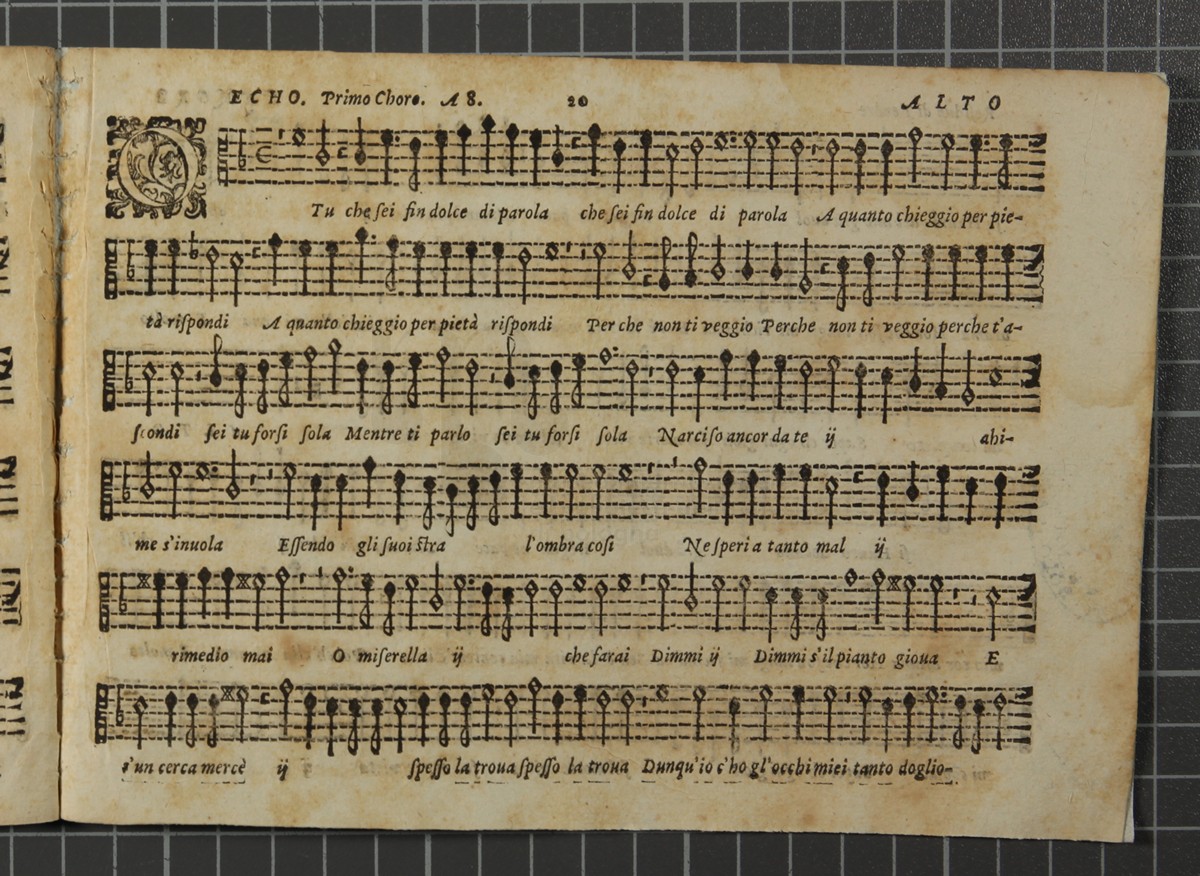 ECHO. Primo Choro. A 8. 20 ALTO
O
Tu che sei fin dolce di parola che sei fin dolce di parola A quanto chieggio per pie-
tà rispondi A quanto chieggio per pietà rispondi Per che non ti veggio Perche non ti veggio perche t'a-
scondi sei tu forsi sola Mentre ti parlo sei tu forsi sola Narciso ancor da te ij ahi-
me s'inuola Essendo gli suoi stra l'ombra cosi Ne speri a tanto mal ij
rimedio mai O miserella ij che farai Dimmi ij Dimmi s'il pianto gioua E
s'un cerca mercè ij spesso la troua spesso la troua Dunqu'io c'ho gl'occhi miei tanto doglio-